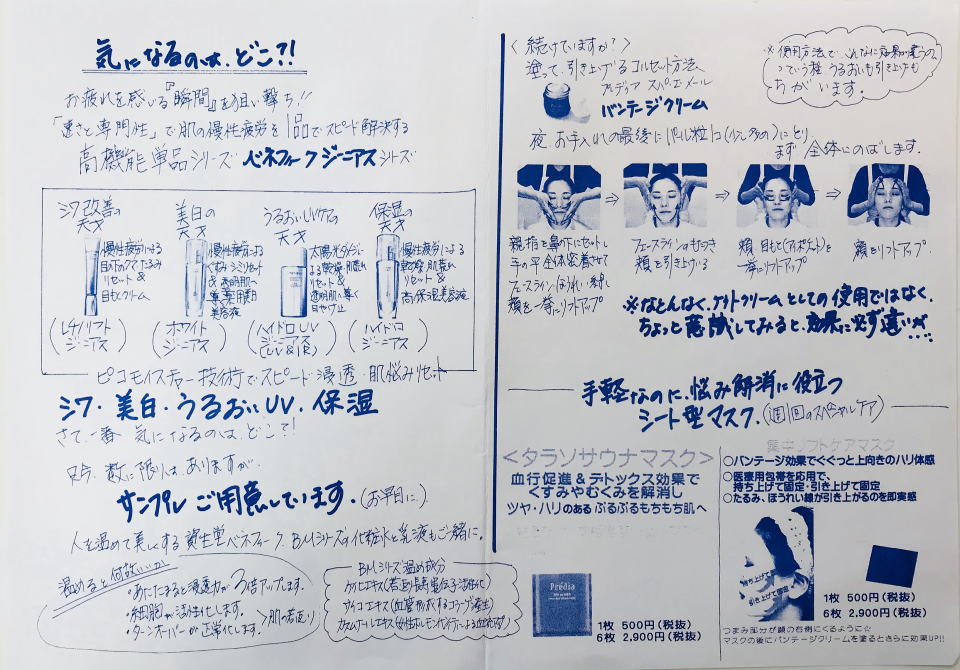 気になるのは、どこ?!
お疲れを感じる『瞬間』を狙い撃ち!!
「速さと専門性」で肌の慢性疲労を1品でスピード解決する
高機能単品シリーズ ベネフィークジーニアスシリーズ
シワ改善の天才
慢性疲労による
目の下のクマたるみ
リセット&
目もとクリーム
(レチノリフトジーニアス)
美白の天才
慢性疲労による
くすみ シミリセット
& 透明肌へ
導く薬用美白
美容液
(ホワイトジーニアス)
うるおいUVケアの天才
太陽光ダメージに
よる乾燥・肌荒れ
リセット&
透明肌へ導く
日やけ止め
(ハイドロUVジーニアス(UV&IR))
保湿の天才
慢性疲労による
乾燥・肌荒れ
リセット&
高保湿美容液
(ハイドロジーニアス)
ピコモイスチャー技術でスピード浸透・肌悩みリセット
シワ・美白・うるおいUV・保湿
さて、一番気になるのは、どこ?!
只今、数に限りは、ありますが、
サンプル ご用意しています。(お早目に)
人を温めて美しくする資生堂ベネフィーク、BMシリーズの化粧水と乳液もご一緒に。
温めると何故いいか
・あたたまると浸透力が3倍アップします。
・細胞が活性化します。
・ターンオーバーが正常化します。
>肌の若返り
BMシリーズ温め成分
ケイヒエキス(若返り長寿遺伝子活性化)
サイコエキス(血管を形成するコラーゲン産生)
<続けていますか?>
塗って、引き上げるコルセット方法、
プレディア スパ・エ・メール
バンテージクリーム
※使用方法で、こんなに効果が違うの
っていう程 うるおいも引き上げも
ちがいます。
夜、お手入れの最後にパール粒1コ(少し多め)にとり
まず全体にのばします。
親指を鼻の下にセットし
手の平全体密着させて
フェースラインほうれい線
頬を一挙にリフトアップ
フェースラインのもたつき
頬を引き上げる
頬、目もと(アイポケット)を
一挙にリフトアップ
額をリフトアップ
※なんとなく、ナイトクリームとしての使用ではなく、
ちょっと意識してみると、効果に必ず違いが...
手軽なのに、悩み解消に役立つ
シート型マスク。(週1回のスペシャルケア)
<タラソサウナマスク>
血行促進&デトックス効果で
くすみやむくみを解消し
ツヤ・ハリのある ぷるぷるもちもち肌へ
Prédia
1枚 500円(税抜)
6枚 2,900円(税抜)
集中リフトケアマスク
○バンテージ効果でぐぐっと上向きのハリ体感
○医療用包帯を応用で、
持ち上げて固定・引き上げて固定
○たるみ、ほうれい線が引き上がるのを即実感
持ち上げて固定
引き上げて固定
1枚 500円(税抜)
6枚 2,900円(税抜)
つまみ部分が顔の右側にくるように☆
マスクの後にバンテージクリームを塗るとさらに効果UP!!